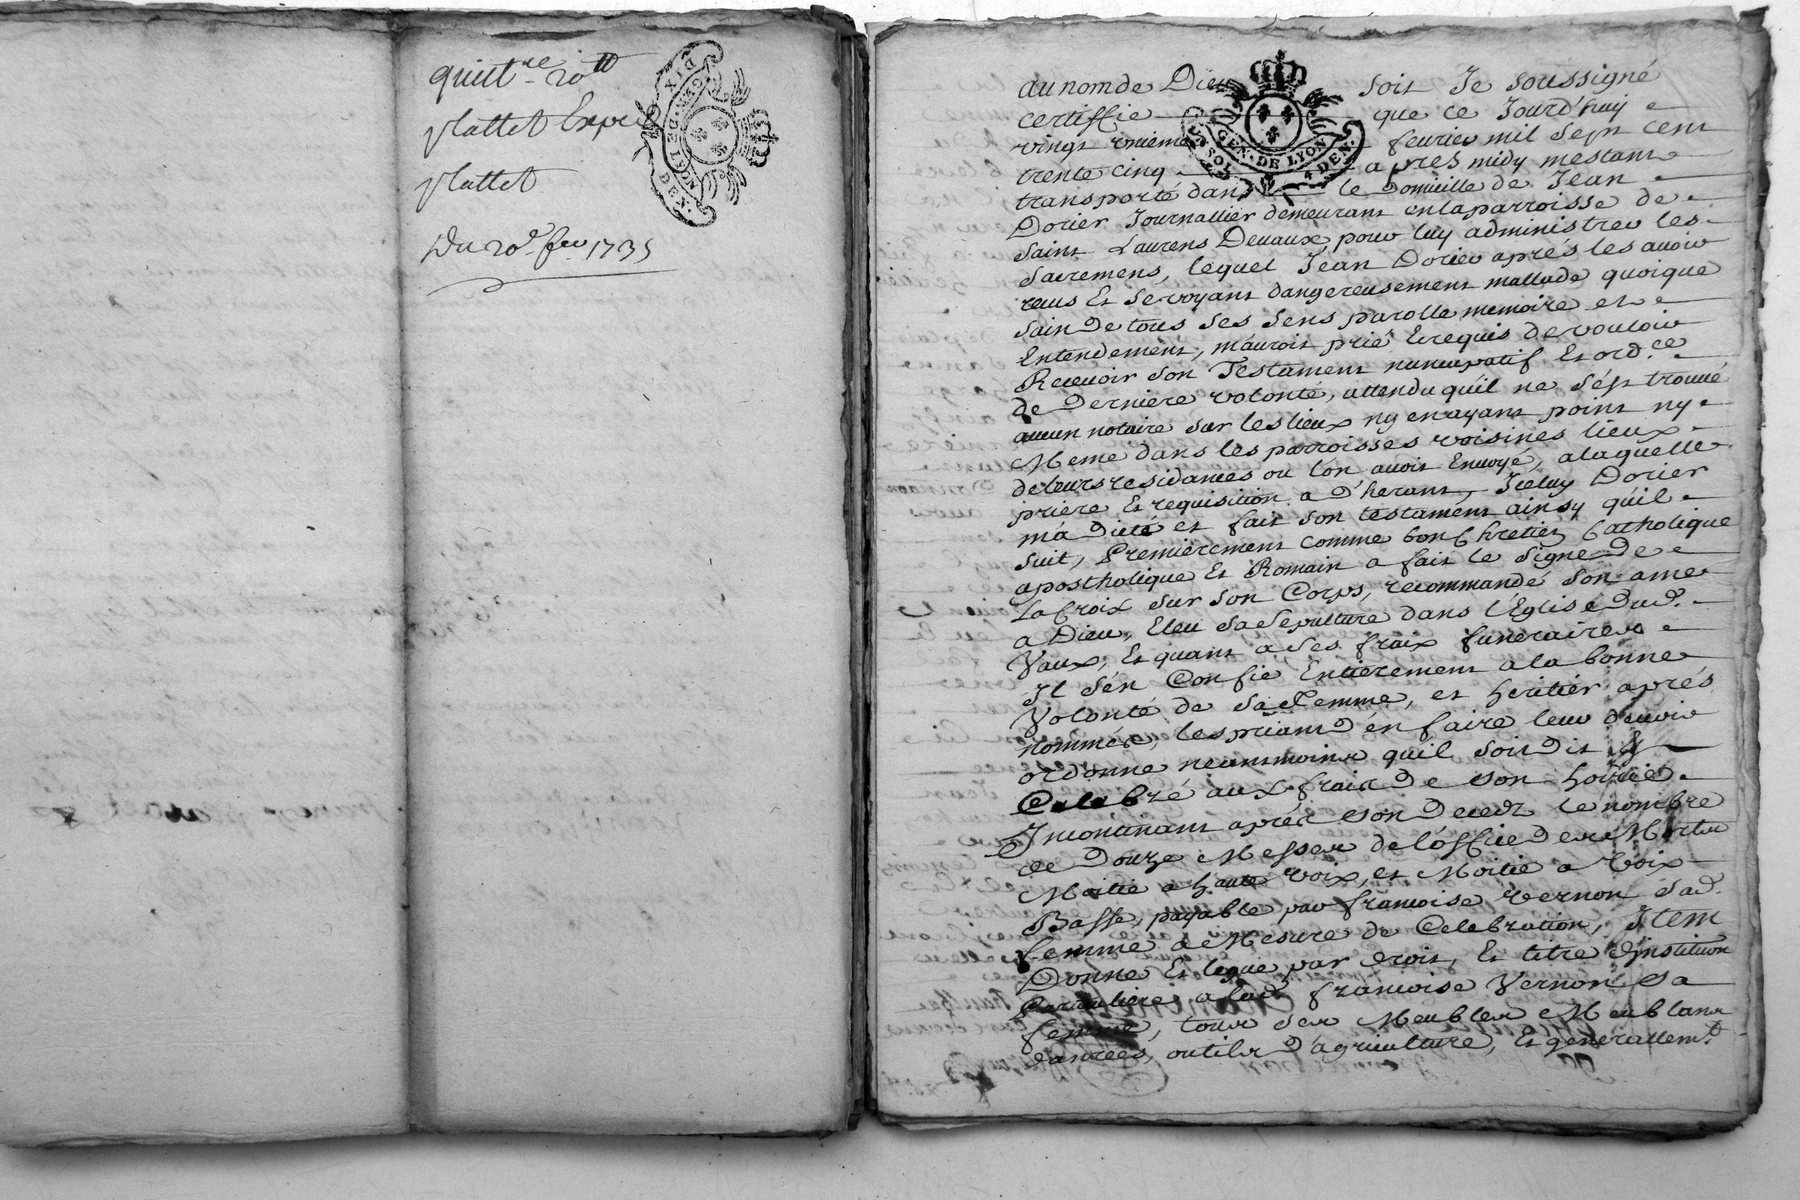 quitt.re 20 tt
plattet
plattet
Du 20.e feu. 1735
GEN·DE LYON
DEN.
au nom de Dieu soit Je soussigné
certiffie que ce Jourd'huy
vingt unieme feurier mil sept cent
trente cinq apres midy mestant
transporté dans le Domicille de Jean
Dorier Journallier demeurant en la parroisse de
Saint Laurens Deuaux, pour luy administrer les
Sacremens, lequel Jean Dorier aprés les auoir
receus Et se voyant dangereusement mallade quoique
sain De tous ses sens parolle memoire et
Entendement, m'auroit prié Et requis de vouloir
Receuoir son Testament nuncupatif Et ord.ce
de Derniere volonté, attendu qu'il ne s'est trouué
aucun notaire sur les lieux ny en ayant point ny
Meme dans les parroisses voisines lieux
de leurs residances ou l'on auoit Enuoyé, a laquelle
priere Et requisition a D'herant, Iceluy Dorier
m'a Dicté et fait son testament ainsy qu'il
suit, Premierement comme bon Chretien Catholique
apostholique Et Romain a fait le signe De
La Croix sur son Corps, recommandé son ame
a Dieu, Eleu sa Sepulture dans l'Eglise Dud.
Vaux, Et quant a ses fraix funeraires
Il s'en Confie Entierement a la bonne
Volonté de sa Femme, et heritier aprés
nommés, les priant d'en faire leur deuoir
ordonne neantmoins qu'il soit dit Et
Celebré aux fraix de son hoirie
Incontinant aprés son Decedz le nombre
de Douze Messes de l'office des Morts
Moitié a haute voix, et Moitié a Voix
Basse, payable par francoise vernon sad.
femme a Mesure de Celebration, Item
Donne Et legue par droit, Et titre d'institution
particuliere a lad. francoise Vernon sa
femme, tous ses Meubles Meublans
danrées, outils D'agriculture, Et generallem.t